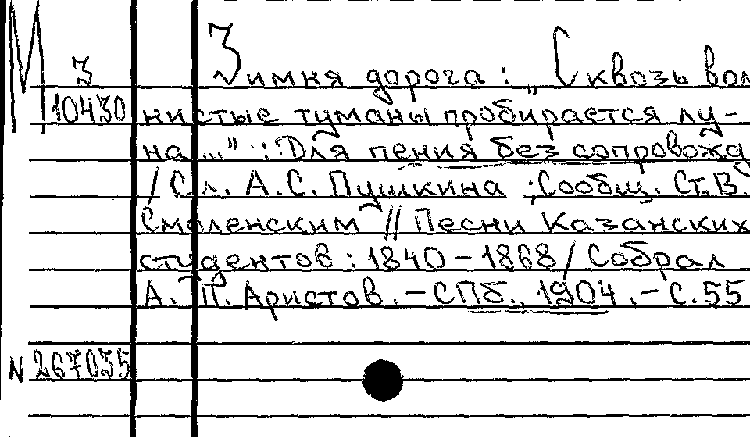 М
З
10430
Зимняя дорога: „Сквозь вол
нистые туманы пробирается лу-
на ..." : Для пения без сопровожд
/ Сл. А.С. Пушкина ; Сообщ. Ст.В.
Смоленским // Песни Казанских
студентов: 1840-1868 / Собрал
А. П. Аристов. - СПб., 1904. - С.55
N 267035